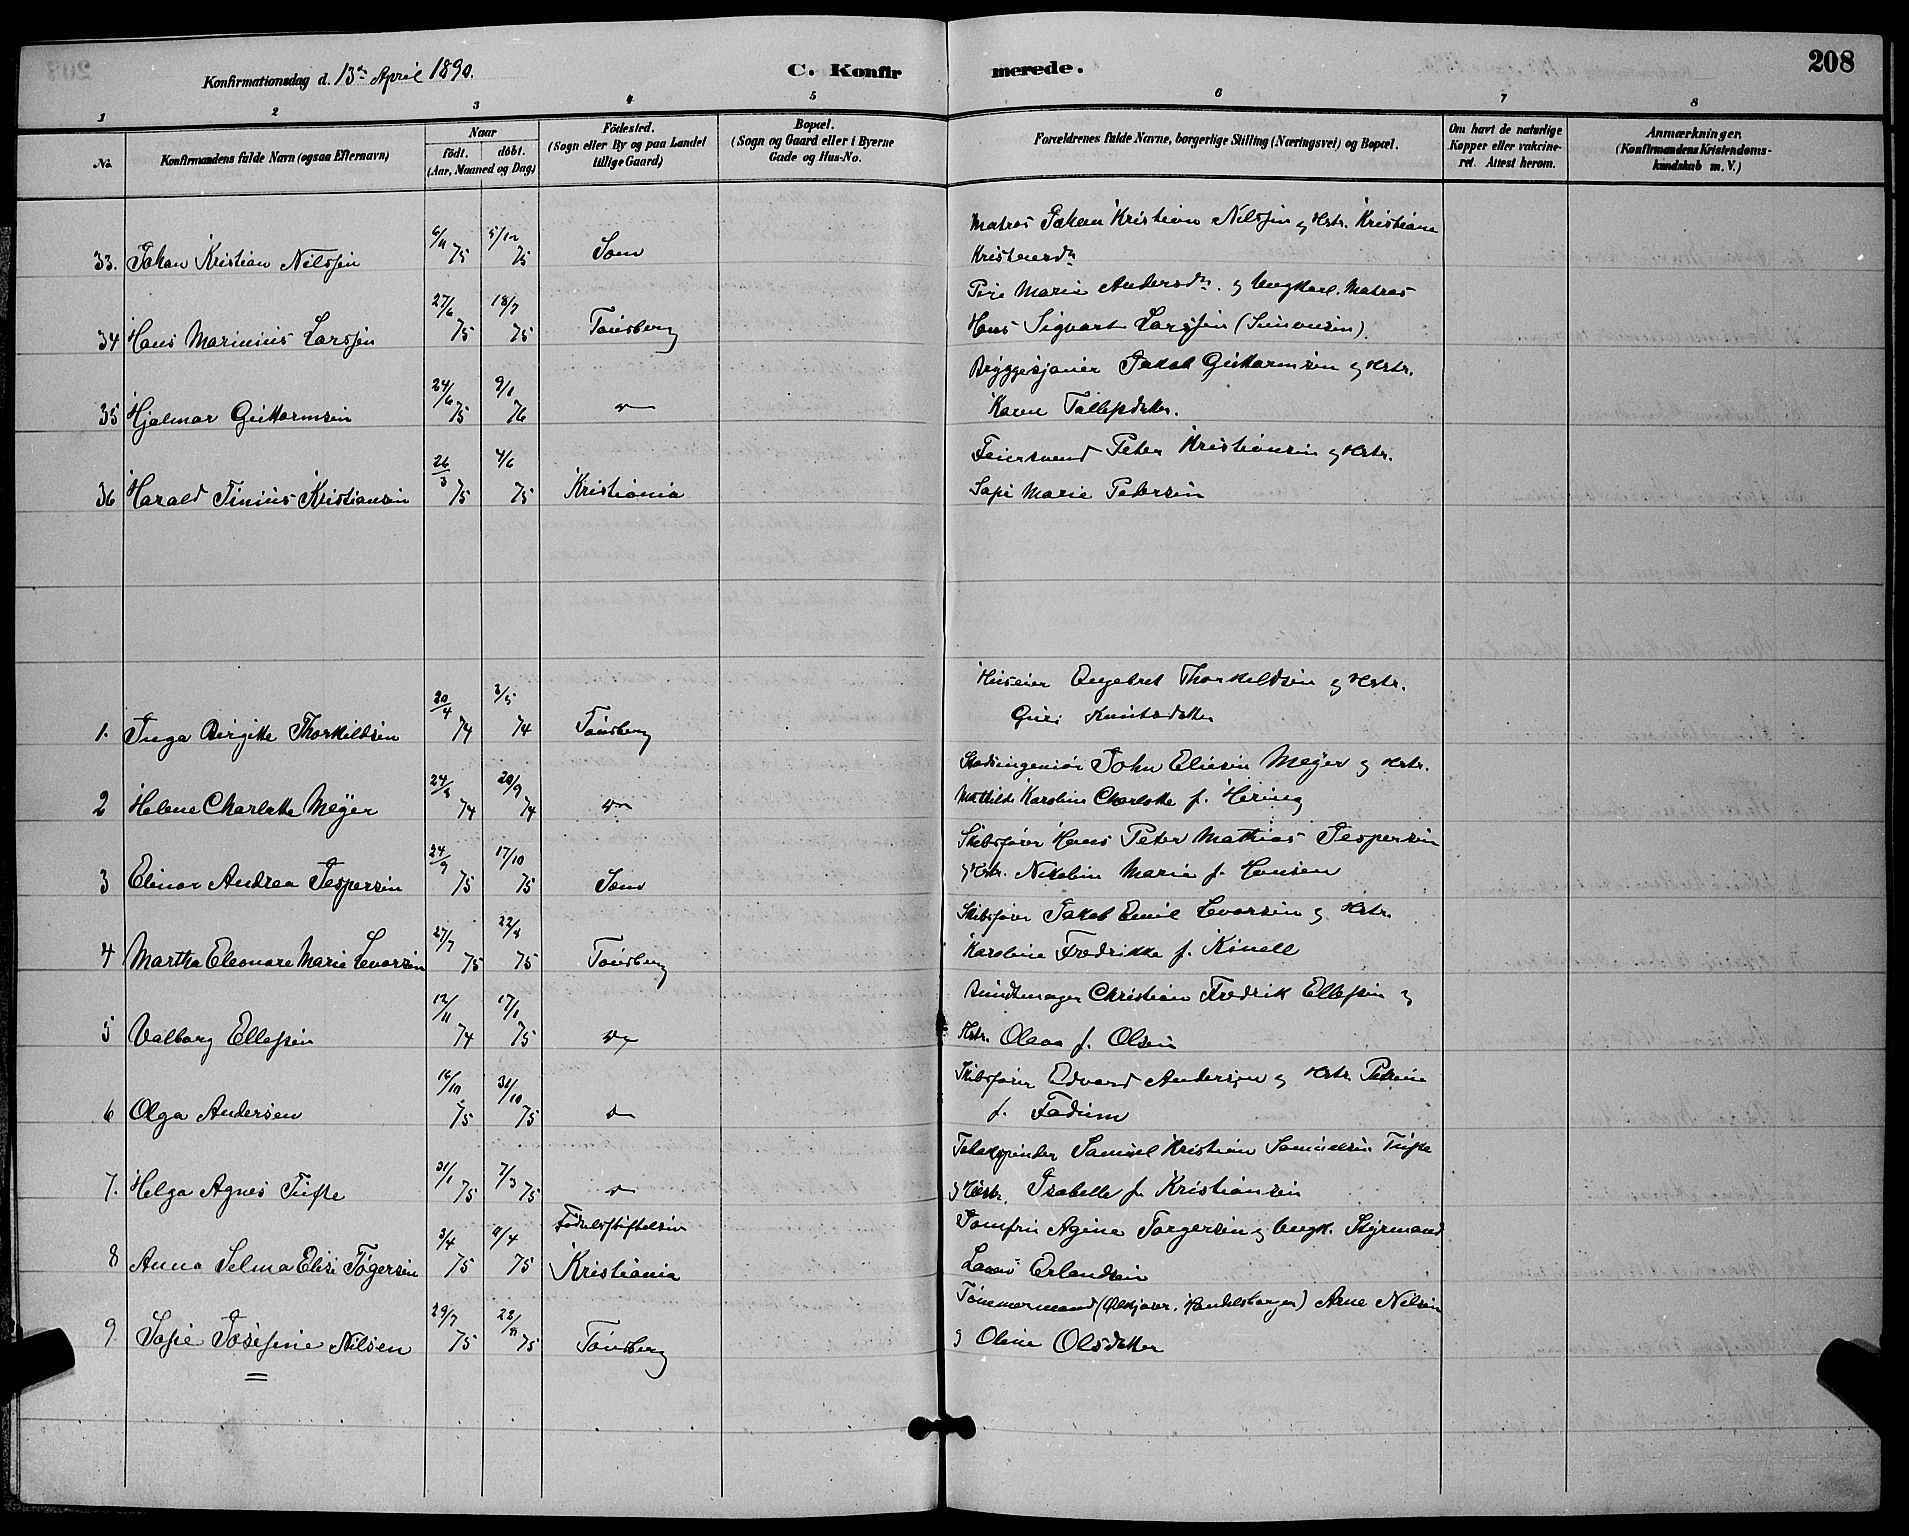 Konfirmationsdag d. 13de April 1890.
C. Konfirmerede.
208
1 2 3 4 5 6 7 8
No.
Konfirmandens fulde Navn (ogsaa Efternavn)
Naar
født. døbt.
(Aar, Maaned og Dag)
Fødested.
(Sogn eller By og paa Landet
tillige Gaard)
Bopæl.
(Sogn og Gaard eller i Byerne
Gade og Hus-No.
Forældrenes fulde Navne, borgerlige Stilling (Næringsvei) og Bopæl.
Om havt de naturlige
Kopper eller vakcine-
ret. Attest herom.
Anmærkninger.
(Konfirmandens Kristendoms-
kundskab m. V.)
33. Johan Kristian Nilssen 6/11 75 5/12 75 Sem Matros Johan Kristian Nilssen og Hstr. Kristiane
34 Hans Marinius Larssen 27/6 75 18/7 75 Tønsberg Pige Marie Andersdtr. og Ungkarl. Matros
Hans Sigvart Larssen (Simonsen).
35 Hjalmar Guttormsen 24/6 75 9/1 76 Bryggesjouer Jakob Guttormsen og Hstr.
Karen Tollefsdatter.
36 Harald Tinius Kristiansen 26/3 75 4/6 75 Kristiania Feiersvend Peter Kristiansen og Hstr.
Sofie Marie Petersen
1. Inga Birgitte Thorkildsen 20/4 74 3/5 74 Tønsberg Huseier Engebret Thorkildsen og Hstr.
Guri Knutsdatter
2 Helene Charlotte Meyer 24/8 74 20/9 74 Stadsingeniør John Eliesen Meyer og Hstr.
Mathilde Karoline Charlotte f. Hering
3 Elinor Andrea Jespersen 24/9 75 17/10 75 Sem Skibsfører Hans Peter Mathias Jespersen
og Hstr. Nikoline Marie f. Hansen
4 Martha Eleonore Marie Evarsen 27/7 75 22/8 75 Tønsberg Skibsfører Jakob Emil Evarsen og Hstr.
Karoline Fredrikke f. Kinell
5 Valborg Ellefsen 12/11 74 17/1 75 Bundtmager Christian Fredrik Ellefsen og
Hstr. Olava f. Olsen
6 Olga Andersen 16/10 75 31/10 75 Skibsfører Edvard Andersen og Hstr. Petrine
f. Fadum
7. Helga Agnes Tufte 31/1 75 7/3 75 Tobakspinder Samuel Kristian Samuelsen Tufte
og Hstr. Isabelle f. Kristiansen
8 Anna Selma Elise Togersen 3/4 75 11/4 75 Fødselsstiftelsen
Kristiania Jomfru Agine Torgersen og Ungk. Styrmand
Erlandsen
9. Sofie Josefine Nilsen 29/7 75 22/8 75 Tønsberg Tømmermand (Handelsborger) Arne Nilsen
og Oline Olsdatter